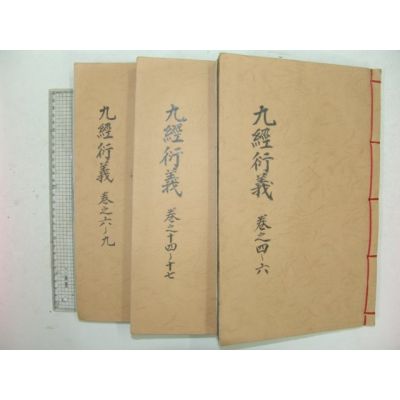 九經衍義
卷之六~九
九經衍義
卷之十四~十七
九經衍義
卷之四~六